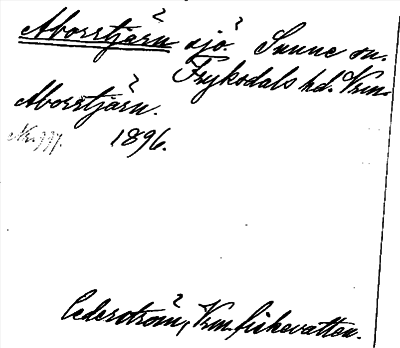 Aborrtjärn sjö. Sunne sn.
Fryksdals hd. Vrm.
Aborrtjärn.
1896.
Cederström, Vrm. fiskevatten.